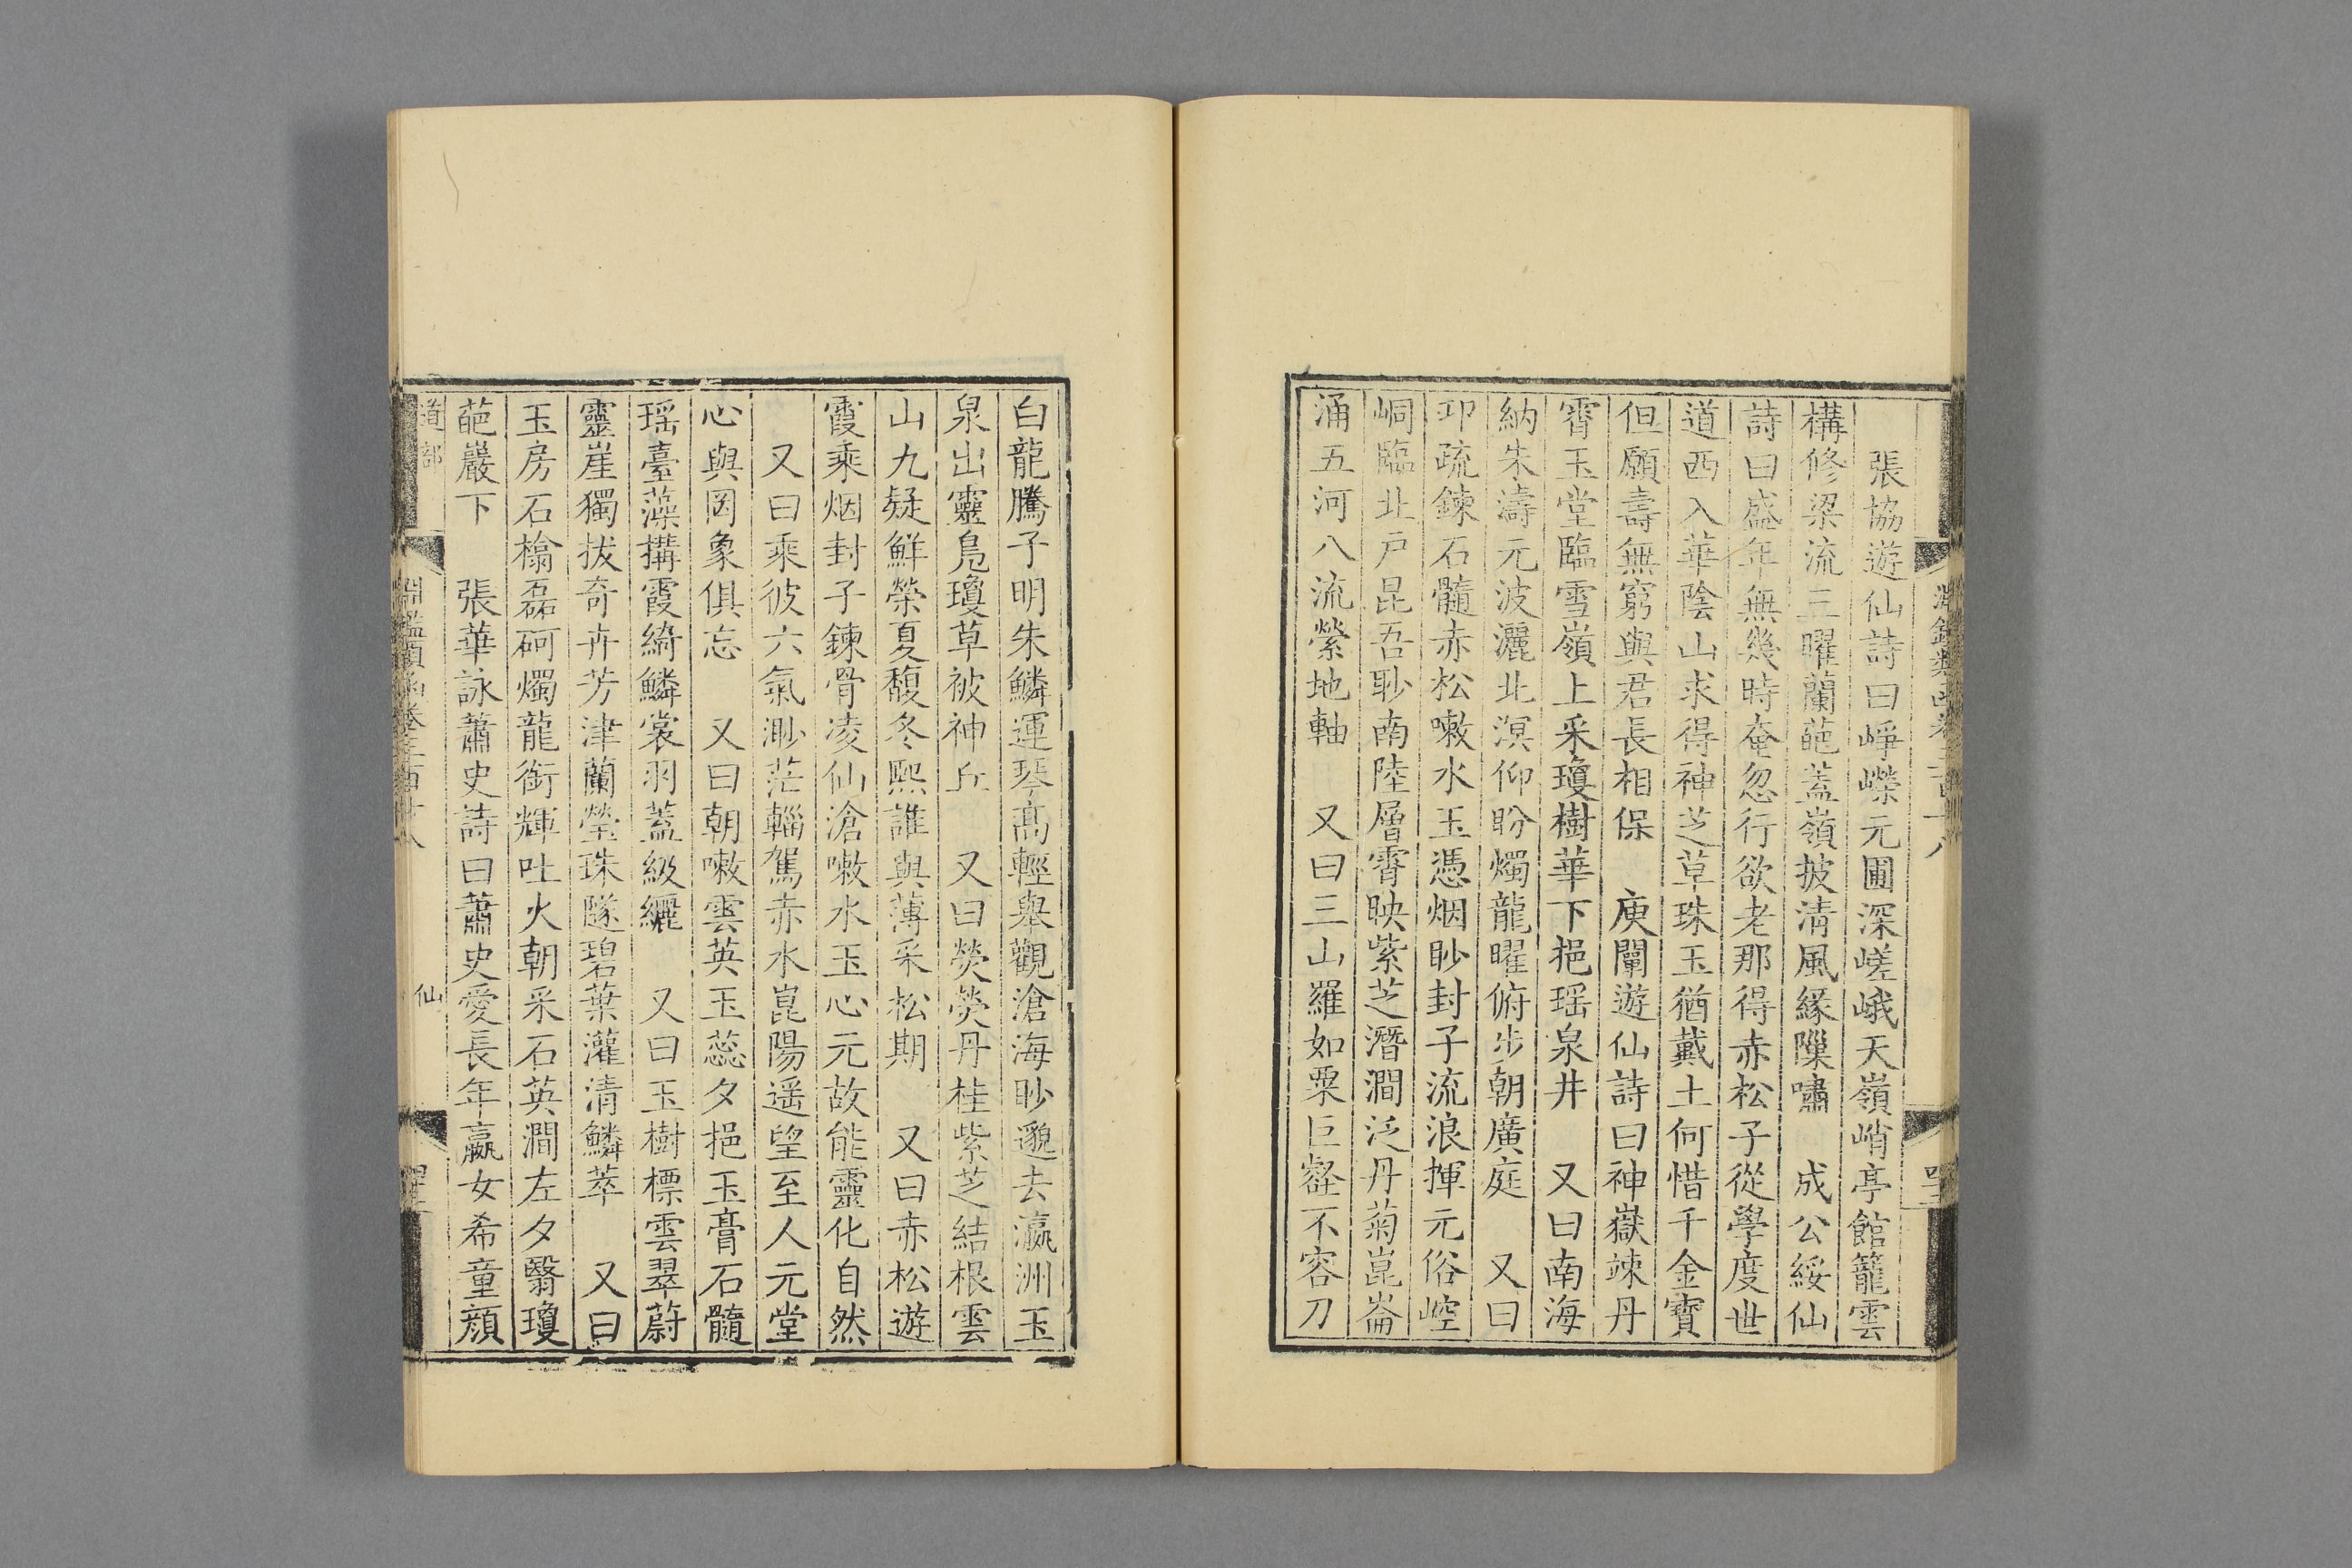 張協遊仙詩曰崢嶸元圃深嵯峨天嶺峭亭館籠雲
構修梁流三曜蘭葩蓋嶺披清風緣隟嘯　成公綏仙
詩曰盛年無幾時奄忽行欲老那得赤松子從學度世
道西入華陰山求得神芝草珠玉猶戴土何惜千金寶
但願壽無窮與君長相保　庾闡遊仙詩曰神嶽竦丹
霄玉堂臨雪嶺上采瓊樹華下挹瑶泉井　又曰南海
納朱濤元波灑北溟仰盼燭龍曜俯步朝廣庭　又曰
卭疏鍊石髓赤松嗽水玉憑烟眇封子流浪揮元俗崆
峒臨北戶昆吾眇南陸層霄映紫芝潛澗泛丹菊崑崙
涌五河八流縈地軸　又曰三山羅如粟巨壑不容刀
白龍騰子明朱鱗運琴高輕舉觀滄海眇邈去瀛洲玉
泉出靈鳧瓊草被神丘　又曰熒熒丹桂紫芝結根雲
山九疑鮮榮夏馥冬熙誰與薄采松期　又曰赤松遊
霞乘烟封子鍊骨凌仙滄嗽水玉心元故能靈化自然
又曰乘彼六氣渺茫輜駕赤水崑陽遥望至人元堂
心與罔象俱忘　又曰朝嗽雲英玉蕊夕挹玉膏石髓
瑶臺藻搆霞綺鱗裳羽蓋級纚　又曰玉樹標雲翠蔚
靈崖獨拔奇卉芳津蘭瑩珠隧碧葉灌清鱗萃　又曰
玉房石榻磊砢燭龍銜輝吐火朝采石英澗左夕翳瓊
葩巖下　張華詠蕭史詩曰蕭史愛長年嬴女希童顏
道部
仙